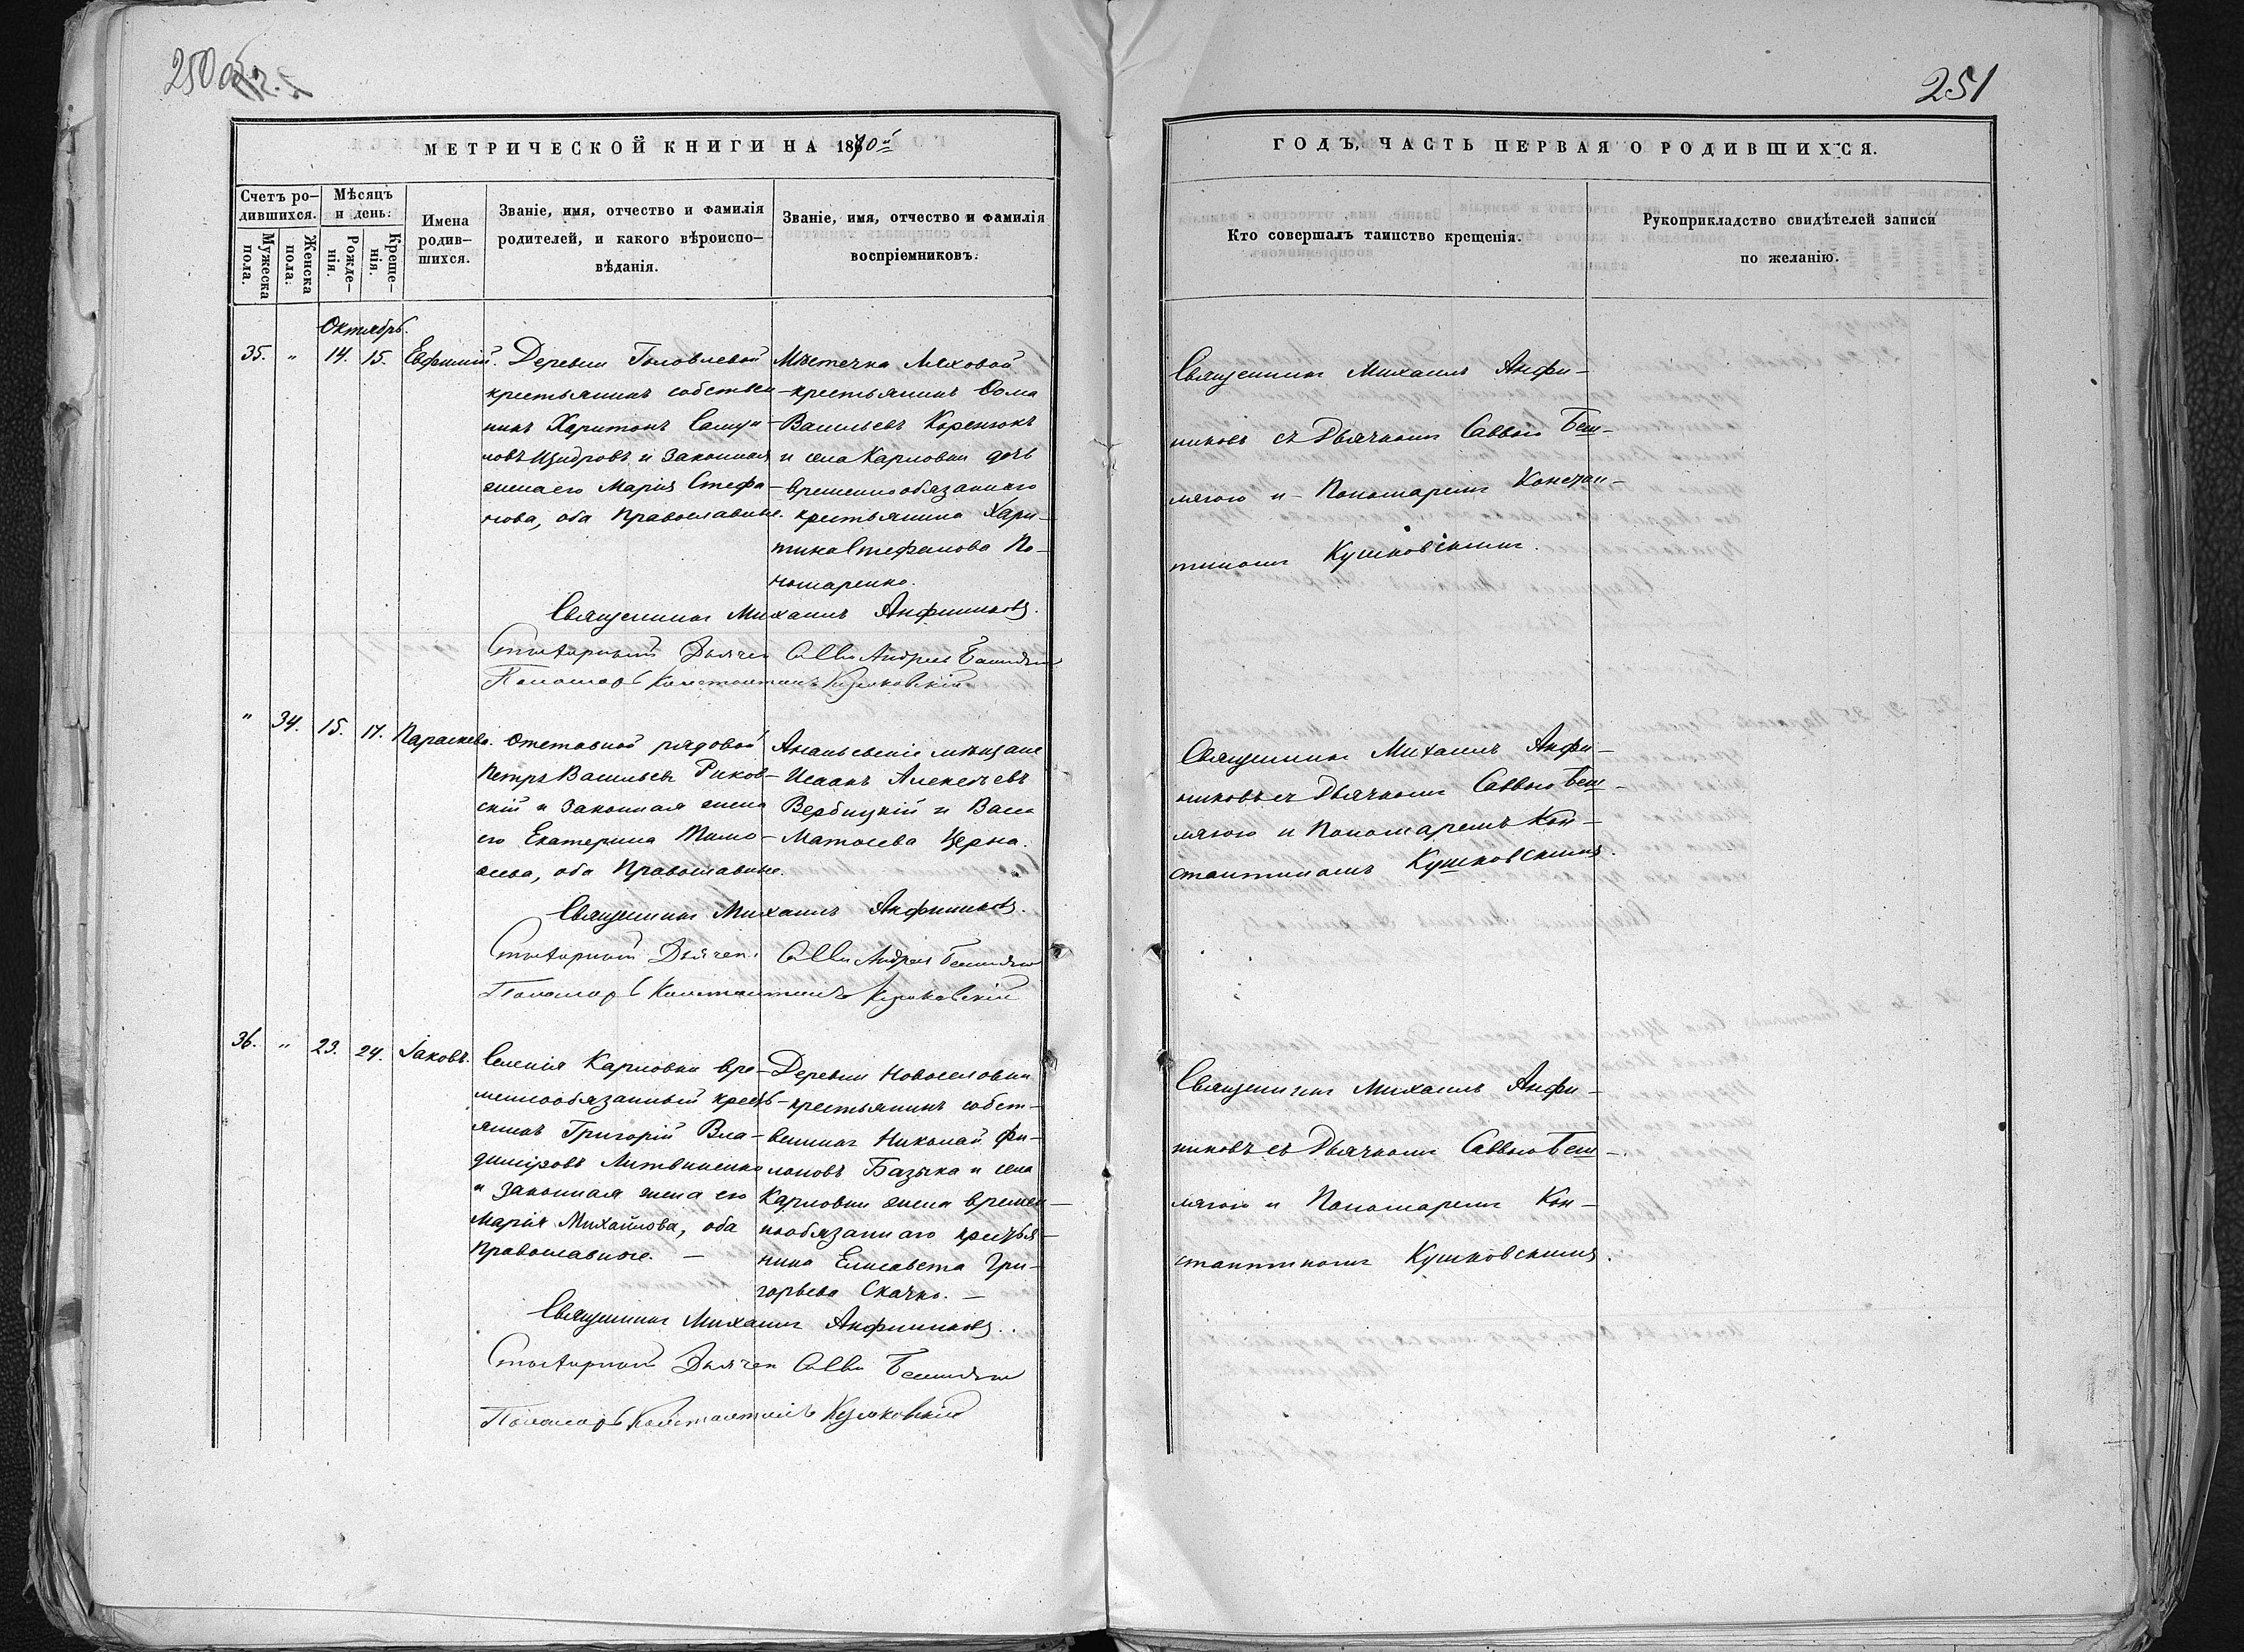 250 об.
251
МЕТРИЧЕСКОЙ КНИГИ НА 1870й
ГОДЪ, ЧАСТЬ ПЕРВАЯ О РОДИВШИХСЯ.
Счетъ ро-
дившихся.
Мужеска
пола.
Женска
пола.
Мѣсяцъ
и день:
Рожде-
нія.
Креще-
нія.
Имена
родив-
шихся.
Званіе, имя, отчество и фамилія
родителей, и какого вѣроиспо-
вѣданія.
Званіе, имя, отчество и фамилія
воспріемниковъ.
Кто совершалъ таинство крещенія.
Рукоприкладство свидѣтелей записи
по желанію.
Октябрь.
35. " 14. 15. Евфимій.
Деревни Головлевой
крестьянинъ собствен
никъ Харитонъ Самуи
ловъ и законная
жена его Марія Стефа-
нова, оба православные.
Мѣстечка Ляховой
крестьянинъ Ѳома
Васильевъ Коренюкъ
и села Карловки дочь
временнообязаннаго
крестьянина Хари-
тина Стефанова По-
номаренко.
Священникъ Михаилъ Анфиниковъ.
Священникъ Михаилъ Анфи-
никовъ съ Дьячкомъ Саввою Беш-
лягою и Пономаремъ Констан-
тиномъ Кушковскимъ.
" 34. 15. 17. Параскева.
Отставной рядовой
Петръ Васильевъ Риков-
скій и законная жена
его Екатерина Тимо-
ѳеева, оба Православные.
Ананьевскіе мѣщане
Исаакъ Алексѣевъ
Вербицкій и Васса
Матѳеева Церна.
Священникъ Михаилъ Анфиниковъ.
Пономарь Константинъ Кушковскій
Священникъ Михаилъ Анфи-
никовъ съ Дьячкомъ Саввою Беш-
лягою и Пономаремъ Кон-
стантиномъ Кушковскимъ.
36. " 23. 24. Іаковъ.
Селенія Карловки вре-
меннообязанный кресть-
янинъ Григорій Вла-
диміровъ Литвиненко
и законная жена его
Марія Михайлова, оба
Православные. —
Деревни Новоселовки
крестьянинъ собст-
венникъ Николай Фи-
лоновъ Базыка и села
Карловки жена времен-
нообязаннаго крестья-
нина Елисавета Гри-
горьева Скачко. —
Священникъ Михаилъ Анфиниковъ.
Пономарь Константинъ Кушковскій
Священникъ Михаилъ Анфи-
никовъ съ Дьячкомъ Саввою Беш-
лягою и Пономаремъ Кон-
стантиномъ Кушковскимъ.